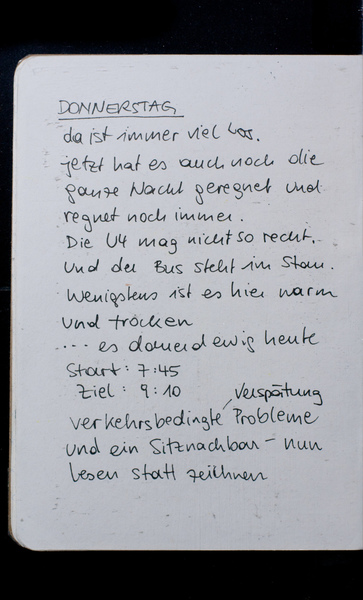 DONNERSTAG
da ist immer viel los.
jetzt hat es auch noch die
ganze Nacht geregnet und
regnet noch immer.
Die U4 mag nicht so recht.
Und der Bus steht im Stau.
Wenigstens ist es hier warm
und trocken
.... es dauerd ewig heute
Start: 7:45
Ziel: 9:10
Verspätung
verkehrsbedingte Probleme
und ein Sitznachbar - nun
lesen statt zeichnen